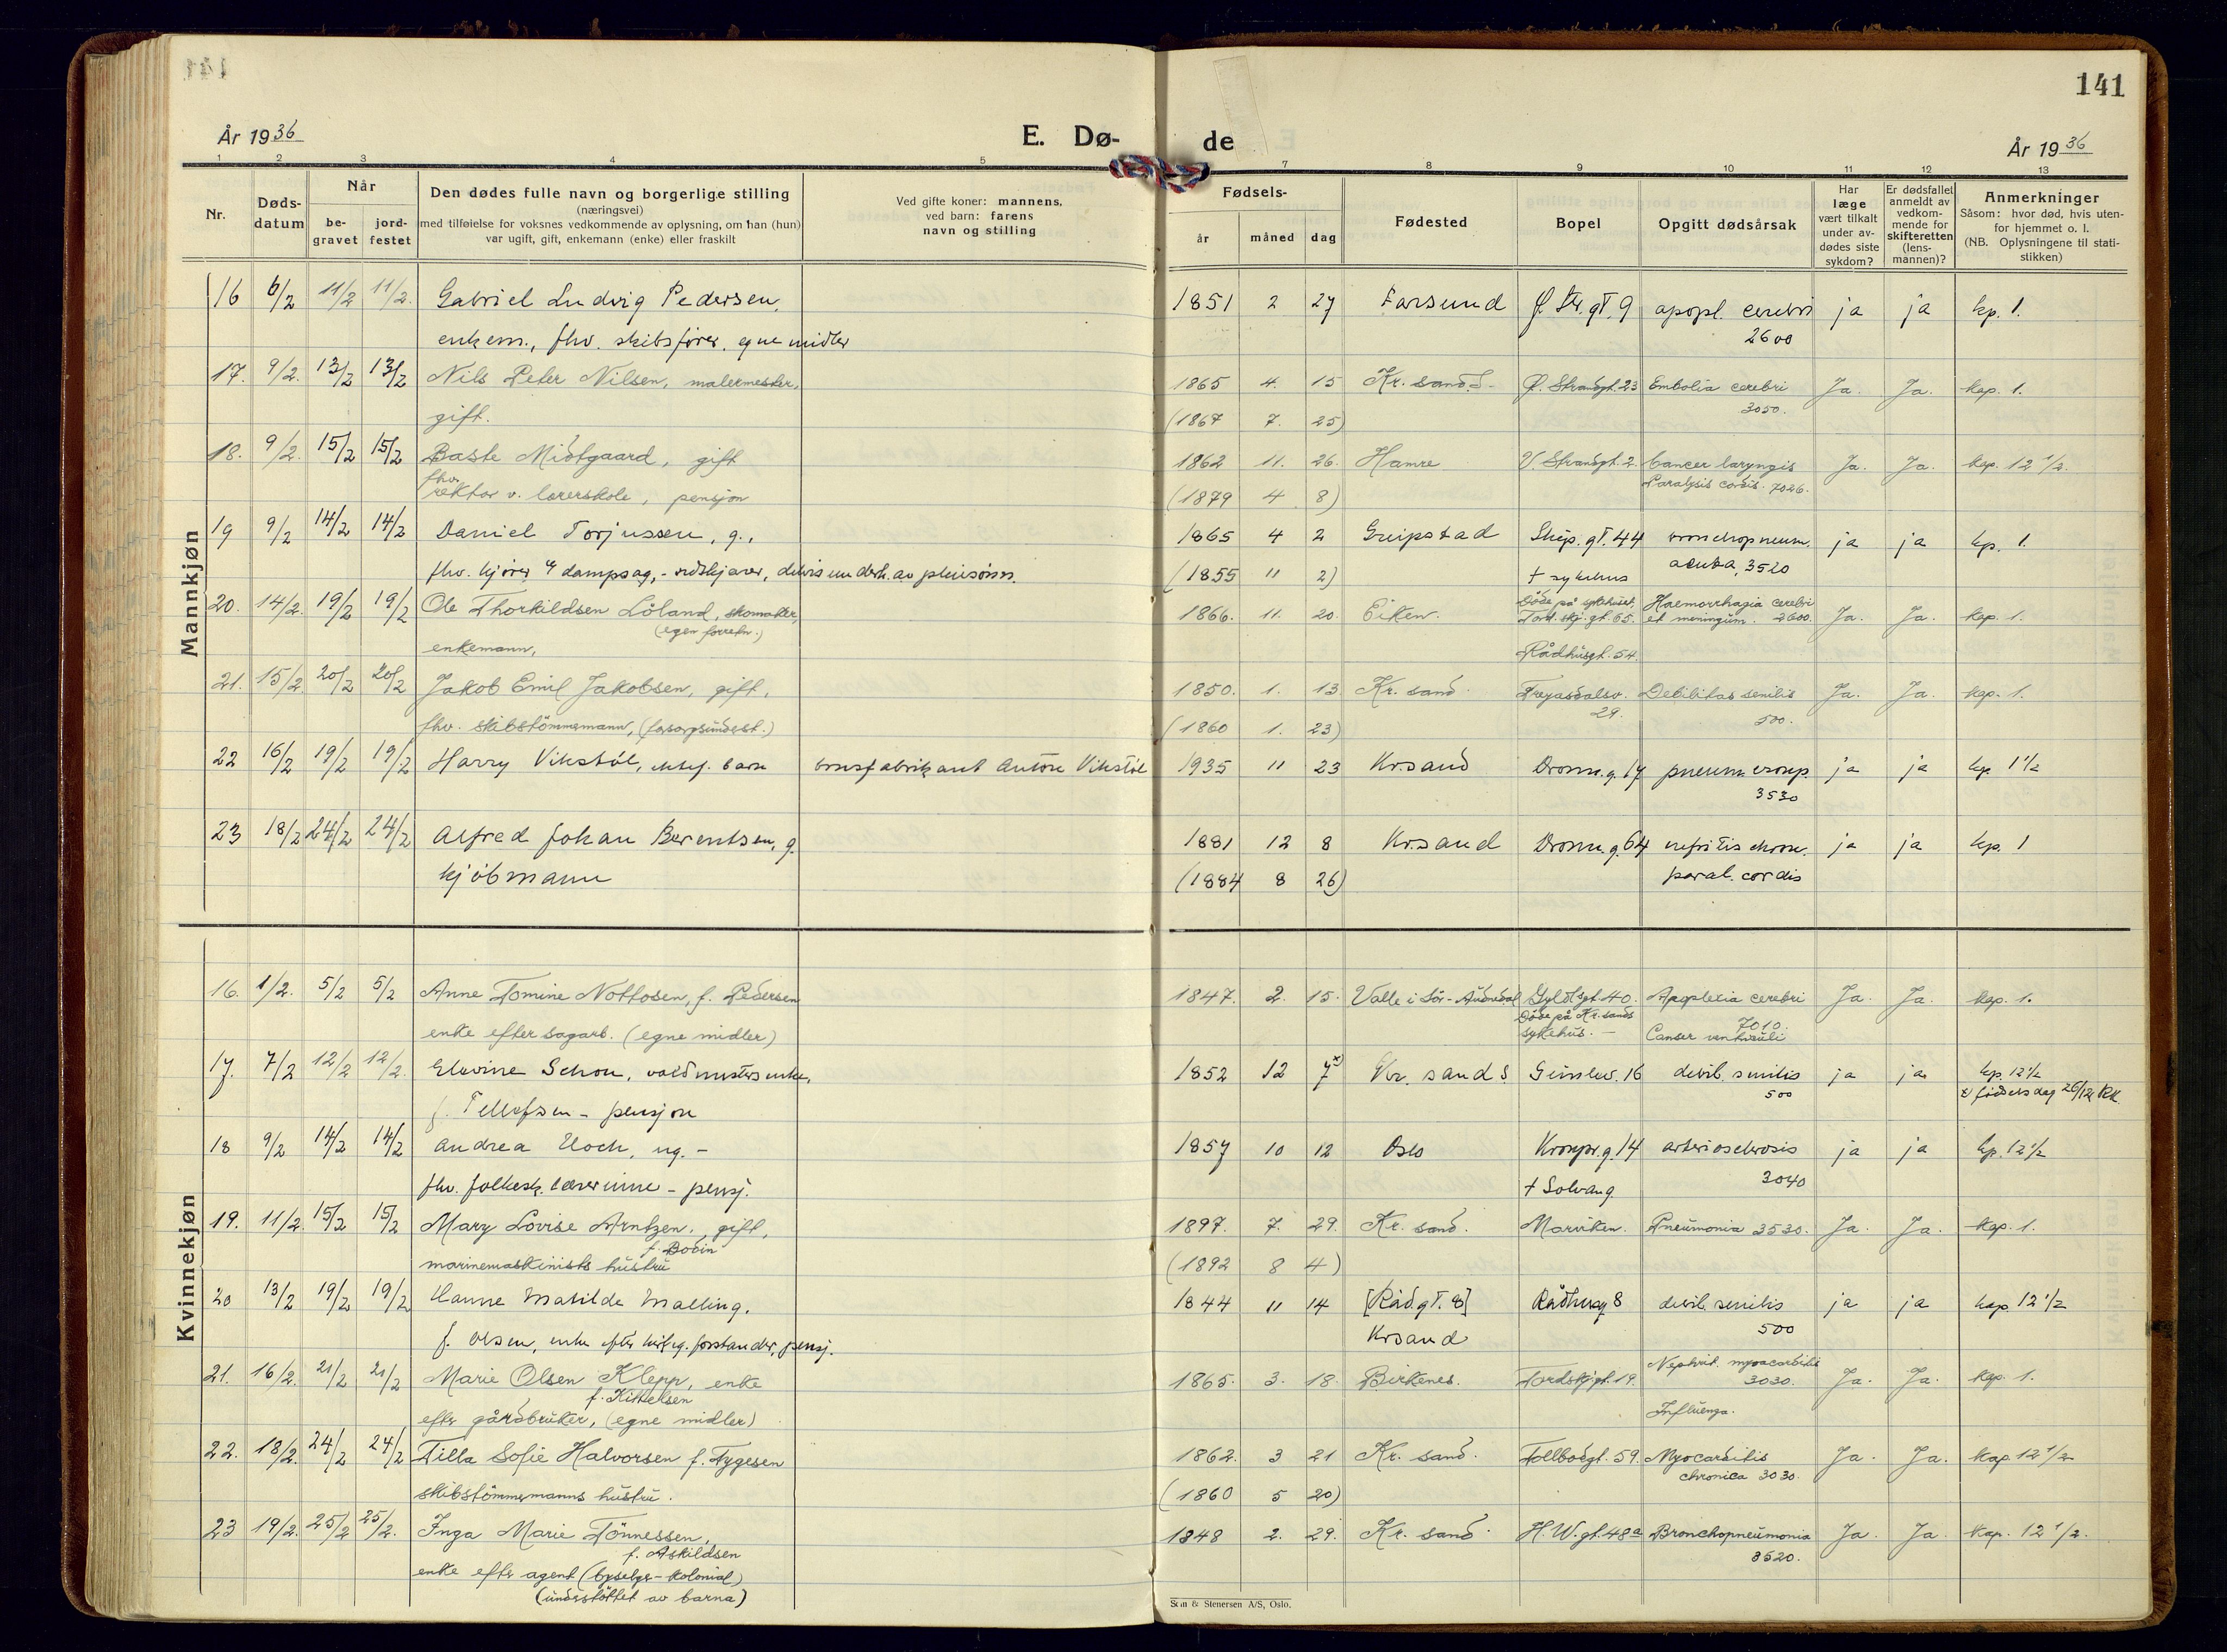 141
År 1936
E. Dø-
de
År 1936
1 2 3 4 5 7 8 9 10 11 12 13
Nr.
Døds-
datum
Når
be-
gravet
jord-
festet
Den dødes fulle navn og borgerlige stilling
(næringsvei)
med tilføielse for voksnes vedkommende av oplysning, om han (hun)
var ugift, gift, enkemann (enke) eller fraskilt
Ved gifte koner: mannens,
ved barn: farens
navn og stilling
Fødsels-
år måned dag
Fødested
Bopel
Opgitt dødsårsak
Har
læge
vært tilkalt
under av-
dødes siste
sykdom?
Er dødsfallet
anmeldt av
vedkom-
mende for
skifteretten
(lens-
mannen)?
Anmerkninger
Såsom: hvor død, hvis uten-
for hjemmet o. l.
(NB. Oplysningene til stati-
stikken)
Mannkjøn
16 6/2 11/2 11/2. Gabriel Ludvig Pedersen, 1851 2 27 Farsund Ø. Str. gt. 9 apopl. cerebri ja ja kp. 1.
enkem., fhv. skibsfører, egne midler 2600
17. 9/2. 13/2 13/2 Nils Peter Nilsen, malermester, 1865 4. 15 Kr. sand.S- Ø. Strandgt. 23 Embolia cerebri Ja. Ja. kap. 1.
3050.
gift. (1867 7. 25)
18. 9/2. 15/2 15/2 Baste Midtgaard, gift 1862 11. 26. Hamre V. Strandgt. 2. Cancer laryngis Ja. Ja. kap. 12 1/2.
fhv. rektor v. lærerskole, pensjon (1879 4 8) Paralysis cordis. 7026.
19 9/2 14/2 14/2 Daniel Torjussen, g., 1865 4 2 Greipstad Skip. gt. 44 bronchopneum. ja ja kp. 1.
fhv. kjører dampsag, - vedskjærer, delvis underh. av pleiesønn. (1855 11 2) † sykehus acuta, 3520
20. 14/2. 19/2 19/2 Ole Thorkildsen Löland, skomaker, 1866. 11. 20. Eiken. Döde på sykehuset, Haemorrhagia cerebri Ja. Ja. kap. 1.
(egen forretn.) Tord. skj. gt. 65. et meningum. 2600.
enkemann, Rådhusgt. 54.
21. 15/2 20/2 20/2 Jakob Emil Jakobsen, gift, 1850. 1. 13 Kr. sand. Frøyasdalsv. Debilitas senilis Ja. Ja. kap. 1.
29. 500.
fhv. skibstömmermann, (forsorgsunderst.) (1860 1. 23)
22 16/2 19/2 19/2 Harry Vikstöl, ektef. barn brusfabrikant Anton Vikstöl 1935 11 23 Kr.sand Dronn.g. 17 pneum. croup. ja ja kp 1 1/2
3530
23 18/2 24/2 24/2 Alfred Johan Berentsen, g. 1881 12 8 Kr.sand Dronn.g. 64 nefritis chron. ja ja kp. 1
kjöbmann (1884 8 26) paral. cordis
Kvinnekjøn
16. 1/2. 5/2 5/2 Anne Tomine Nottosen, f. Pedersen 1847. 2. 15. Valle i Sör-Audnedal Gyldl.gt. 40. Apoplexia cerebri Ja. Ja. kap. 1.
Döde på Kr.sands 7010.
enke efter sagarb. (egne midler) sykehus. - Canser ventriculi
17. 7/2 12/2 12/2. Elevine Schou, voldmesters enke, 1852 12 7x) Kr. sand S Gimlev. 16 debil. senilis ja ja kp. 12 1/2
500 x) födselsdag 26/12 KK.
f. Tellefsen - pensjon
18 9/2 14/2 14/2 Andrea Hoch, ug. - 1857 10 12 Oslo Kronpr.g. 14 arteriosclerosis ja ja kp. 12 1/2
fhv. folkesk. lærerinne - pensj. † Solvang 3040
19. 11/2. 15/2 15/2 Mary Lovise Arntzen, gift, 1897. 7. 29. Kr. sand. Marviken. Pneumonia 3530. Ja. Ja. kap. 1.
f. Bodin
marinemaskinists hustru (1892 8 4)
20 13/2 19/2 19/2 Hanne Matilde Malling. 1844 11 14 [Rådgt. 8] Rådhusg 8 debil. senilis ja ja kap. 12 1/2
f. Olsen, enke efter forstander, pensj. Krsand 500
21. 16/2. 21/2 21/2 Marie Olsen Klepp, enke 1865. 3. 18. Birkenes. Tordskj.gt. 19. Nephrit. myocarditis Ja. Ja. kap. 1.
f. Kittelsen 3030.
efter gårdbruker, (egne midler) Influenza.
22. 18/2. 24/2 24/2 Tilla Sofie Halvorsen f. Tygesen 1862. 3 21 Kr. sand. Tollbodgt. 59. Myocarditis Ja. Ja. kap. 12 1/2
chronica 3030.
skibstömmermanns hustru. (1860 5 20)
23 19/2. 25/2 25/2. Inga Marie Tönnessen, 1848 2. 29. Kr. sand. H.W.gt. 48a Bronchopneumonia Ja. Ja. kap. 12 1/2.
f. Askildsen 3520.
enke efter agent (byselger - kolonial)
(understöttet av barna)
Sem & Stenersen A/S, Oslo.